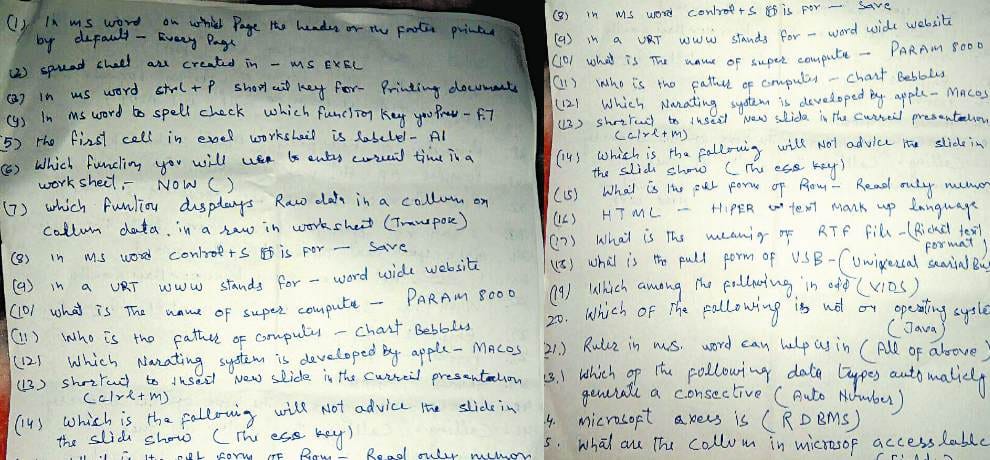 (1) In ms word on which Page the header or the footer printed
by default - Every Page
(2) spread sheet are created in - MS EXEL
(3) In ms word strl + P short cut key for - Printing documents
(4) In ms word to spell check which function key you press - F7
(5) the first cell in exel worksheet is labeled - A1
(6) which function you will use to enter current time in a
work sheet, - NOW ( )
(7) which funtion dusplays Raw data in a collumn on
collum data in a raw in work sheet (Transpose)
(8) in MS word control + S is for - Save
(9) in a URT www stands for - word wide website
(10) what is The name of super compute - PARAM 8000
(11) Who is the father of computer - chart Bebbles
(12) Which Narating system is developed by apple - MACOS
(13) shortcut to insert New slide in the curreil presentation
(clrl + m)
(14) which is the fallowig will Not advice the slide in
the slidi show (The ese key)
full form of Rom - Read only
(8) in MS word control + S is for - Save
(9) in a URT www stands for - word wide website
(10) what is The name of super compute - PARAM 8000
(11) Who is the father of computer - chart Bebbles
(12) Which Narating system is developed by apple - MACOS
(13) shortcut to insert New slide in the curreil presentation
(clrl + m)
(14) which is the fallowig will Not advice the slide in
the slidi show (The ese key)
(15) What is the full form of Rom - Read only
(16) HTML - HIPER text mark up language
(17) What is the meanig of RTF file - (Richet text
format)
(18) what is the full form of USB - (Univexsal
(19) Which among the following in odd (VIDS)
20. Which OF The following is not on operating syste
(Java)
21.) Ruler in m.s. word can help us in (All of above)
3.) which of the following data types automaticly
generate a consective (Auto Number)
4. microsoft axess is (RDBMS)
5. what are the collum in microsof access lable